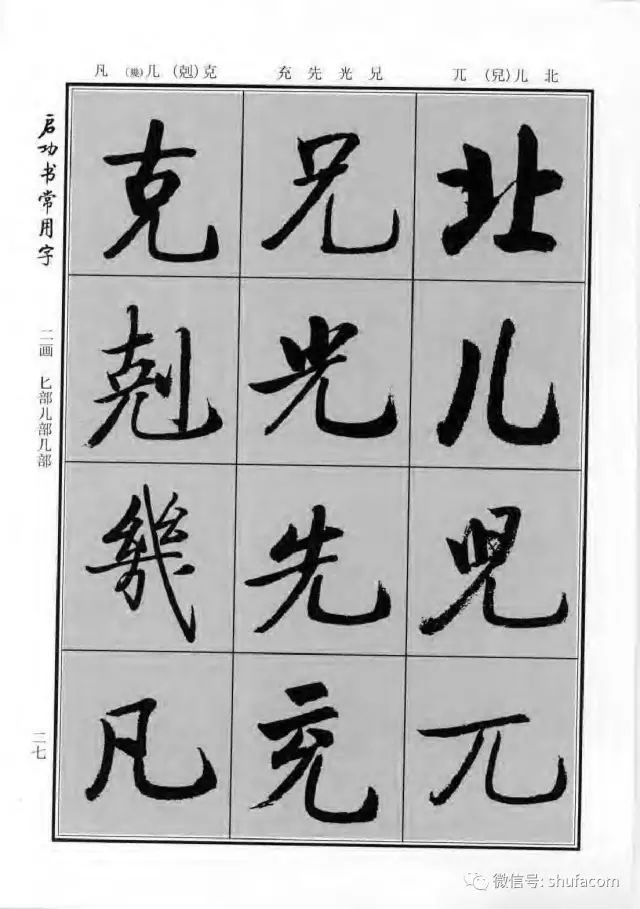 北 儿(兒) 兀 兄 光 先 充 克(剋) 几(幾) 凡
北儿兒兀
兄光先充
克剋幾凡
启功书常用字
二画 匕部儿部几部
二七
微信号: shufacom